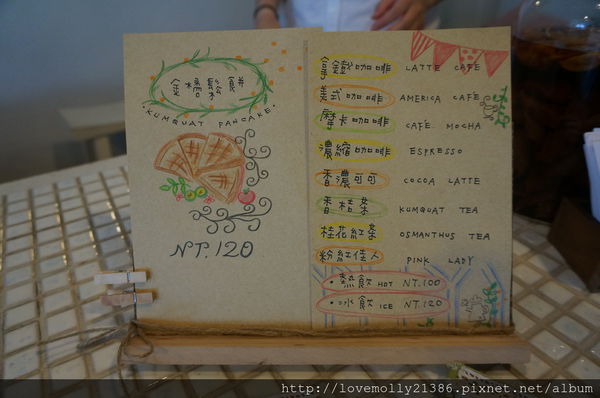 金橘鬆餅
KUMQUAT PANCAKE
NT.120
拿鐵咖啡 LATTE CAFE
美式咖啡 AMERICA CAFE
摩卡咖啡 CAFE MOCHA
濃縮咖啡 ESPRESSO
香濃可可 COCOA LATTE
香桔茶 KUMQUAT TEA
桂花紅茶 OSMANTHUS TEA
粉紅佳人 PINK LADY
•熱飲 HOT NT.100
•冰飲 ICE NT.120
http://lovemolly21386.pixnet.net/album